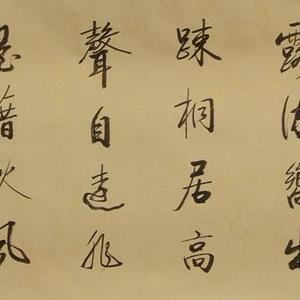 露流響出
踈桐居高
聲自遠非
是藉秋風